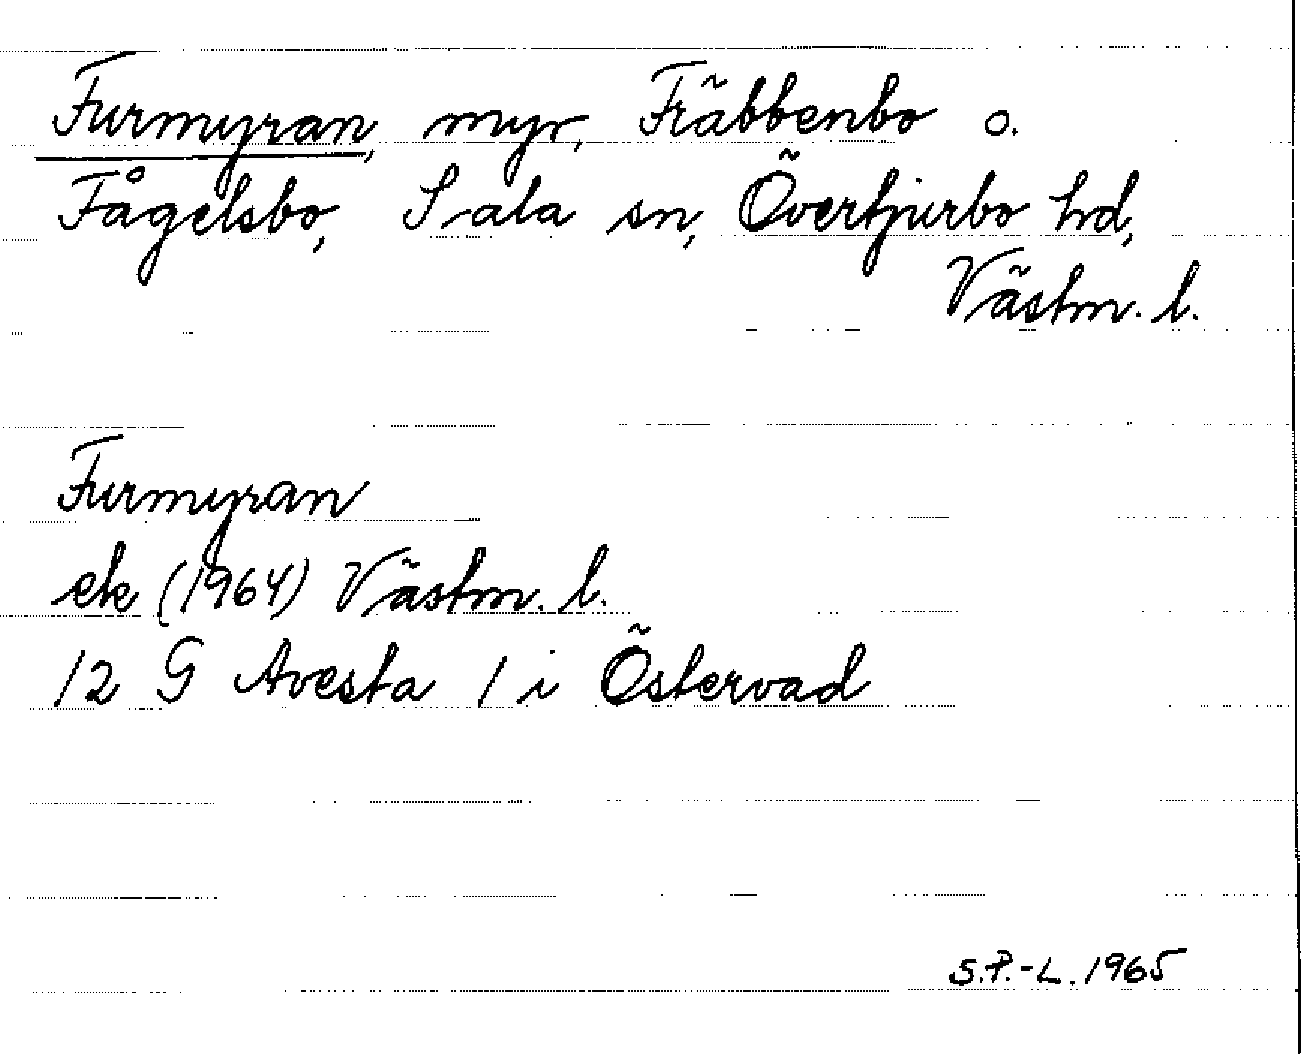 Furmyran, myr, Fräbbenbo o.
Fågelsbo, Sala sn, Övertjurbo hd,
Västm. l.
Furmyran
ek (1964) Västm. l.
12 G Avesta 1 i Östervad
S.P.-L. 1965